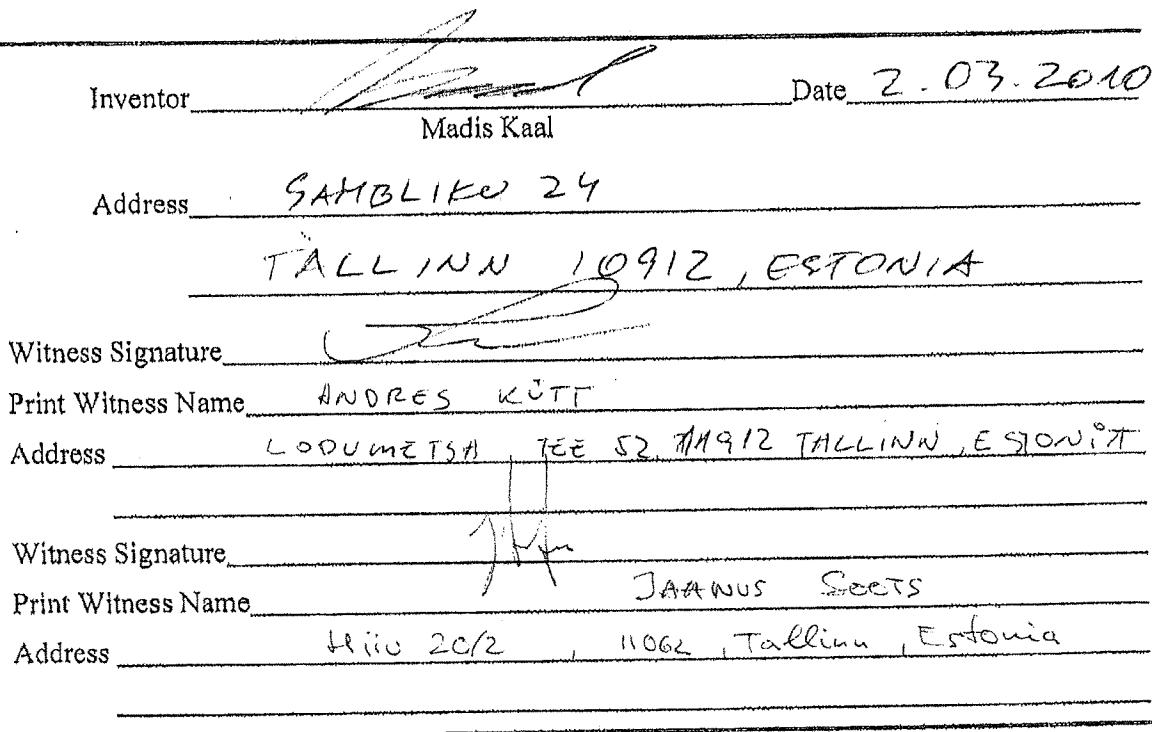 Inventor Date 2.03.2010
Madis Kaal
Address SAMBLIKU 24
TALLINN 10912, ESTONIA
Witness Signature
Print Witness Name ANDRES KÜTT
Address LODUMETSA TEE 52, 11912 TALLINN, ESTONIA
Witness Signature
Print Witness Name JAANUS SOOTS
Address Hiiu 20/2, 11062, Tallinn, Estonia